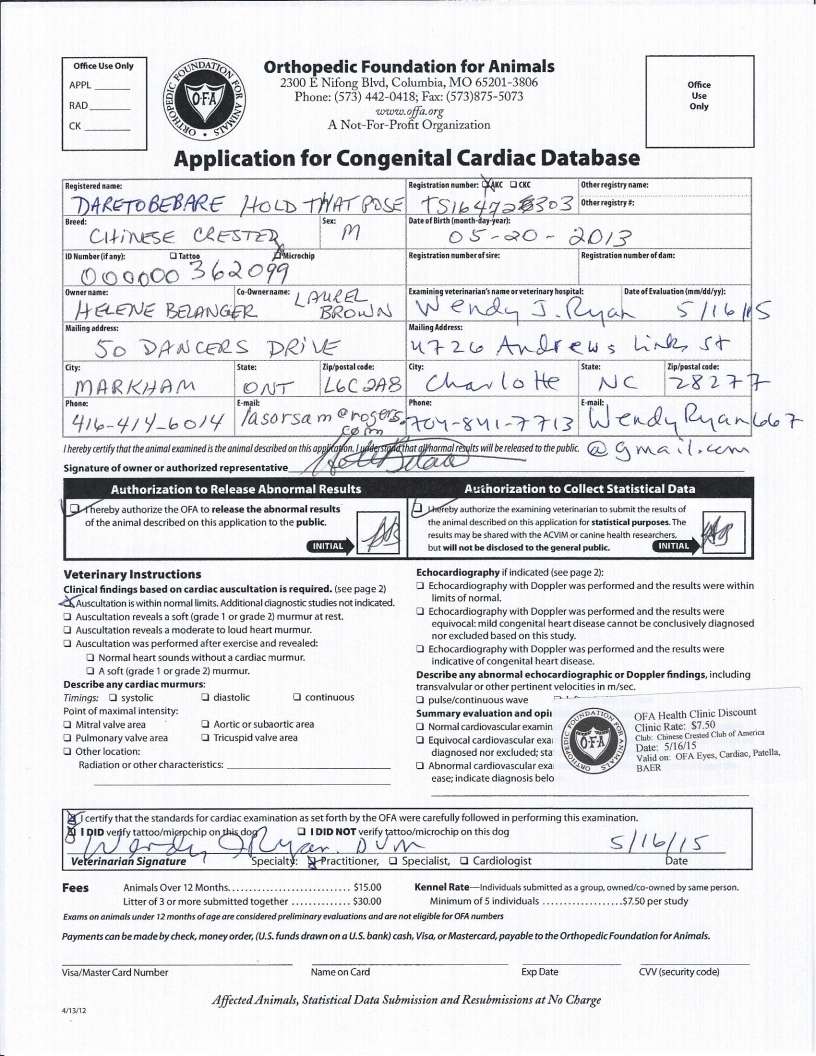 Office Use Only
APPL
RAD
CK
ORTHOPEDIC FOUNDATION FOR ANIMALS
OFA
Orthopedic Foundation for Animals
2300 E Nifong Blvd, Columbia, MO 65201-3806
Phone: (573) 442-0418; Fax: (573)875-5073
www.offa.org
A Not-For-Profit Organization
Office
Use
Only
Application for Congenital Cardiac Database
Registered name: Registration number: AKC CKC Other registry name:
DARETOBEBARE HOLD THAT POSE Other registry #:
Breed: Sex: Date of Birth (month-day-year):
CHINESE CRESTED M 05-20-2013
ID Number (if any): Tattoo Microchip Registration number of sire: Registration number of dam:
000000362099
Owner name: Co-Owner name: Examining veterinarian's name or veterinary hospital: Date of Evaluation (mm/dd/yy):
HELENE BELANGER LAUREL BROWN Wendy J. Ryan 5/16/15
Mailing address: Mailing Address:
50 DANCERS DRIVE 4726 Andrews Links St
City: State: Zip/postal code: City: State: Zip/postal code:
MARKHAM ONT L6C2A8 Charlotte NC 28277
Phone: E-mail: Phone: E-mail:
416-414-6014 lasorsam@rogers.com 704-841-7713 WendyRyan667
@gmail.com
I hereby certify that the animal examined is the animal described on this application. I understand that all normal results will be released to the public.
Signature of owner or authorized representative
Authorization to Release Abnormal Results
I hereby authorize the OFA to release the abnormal results
of the animal described on this application to the public.
INITIAL
Authorization to Collect Statistical Data
I hereby authorize the examining veterinarian to submit the results of
the animal described on this application for statistical purposes. The
results may be shared with the ACVIM or canine health researchers,
but will not be disclosed to the general public.
INITIAL
Veterinary Instructions
Clinical findings based on cardiac auscultation is required. (see page 2)
Auscultation is within normal limits. Additional diagnostic studies not indicated.
Auscultation reveals a soft (grade 1 or grade 2) murmur at rest.
Auscultation reveals a moderate to loud heart murmur.
Auscultation was performed after exercise and revealed:
Normal heart sounds without a cardiac murmur.
A soft (grade 1 or grade 2) murmur.
Describe any cardiac murmurs:
Timings: systolic diastolic continuous
Point of maximal intensity:
Mitral valve area Aortic or subaortic area
Pulmonary valve area Tricuspid valve area
Other location:
Radiation or other characteristics:
Echocardiography if indicated (see page 2):
Echocardiography with Doppler was performed and the results were within
limits of normal.
Echocardiography with Doppler was performed and the results were
equivocal: mild congenital heart disease cannot be conclusively diagnosed
nor excluded based on this study.
Echocardiography with Doppler was performed and the results were
indicative of congenital heart disease.
Describe any abnormal echocardiographic or Doppler findings, including
transvalvular or other pertinent velocities in m/sec.
pulse/continuous wave
Summary evaluation and opi
Normal cardiovascular examin
Equivocal cardiovascular exa
diagnosed nor excluded; sta
Abnormal cardiovascular exa
ease; indicate diagnosis belo
OFA
OFA Health Clinic Discount
Clinic Rate: $7.50
Club: Chinese Crested Club of America
Date: 5/16/15
Valid on: OFA Eyes, Cardiac, Patella,
BAER
I certify that the standards for cardiac examination as set forth by the OFA were carefully followed in performing this examination.
I DID verify tattoo/microchip on this dog I DID NOT verify tattoo/microchip on this dog
Wendy J Ryan, DVM 5/16/15
Veterinarian Signature Specialty: Practitioner, Specialist, Cardiologist Date
Fees Animals Over 12 Months............................ $15.00
Litter of 3 or more submitted together .............. $30.00
Kennel Rate—Individuals submitted as a group, owned/co-owned by same person.
Minimum of 5 individuals ...................$7.50 per study
Exams on animals under 12 months of age are considered preliminary evaluations and are not eligible for OFA numbers
Payments can be made by check, money order, (U.S. funds drawn on a U.S. bank) cash, Visa, or Mastercard, payable to the Orthopedic Foundation for Animals.
Visa/Master Card Number Name on Card Exp Date CVV (security code)
Affected Animals, Statistical Data Submission and Resubmissions at No Charge
4/13/12